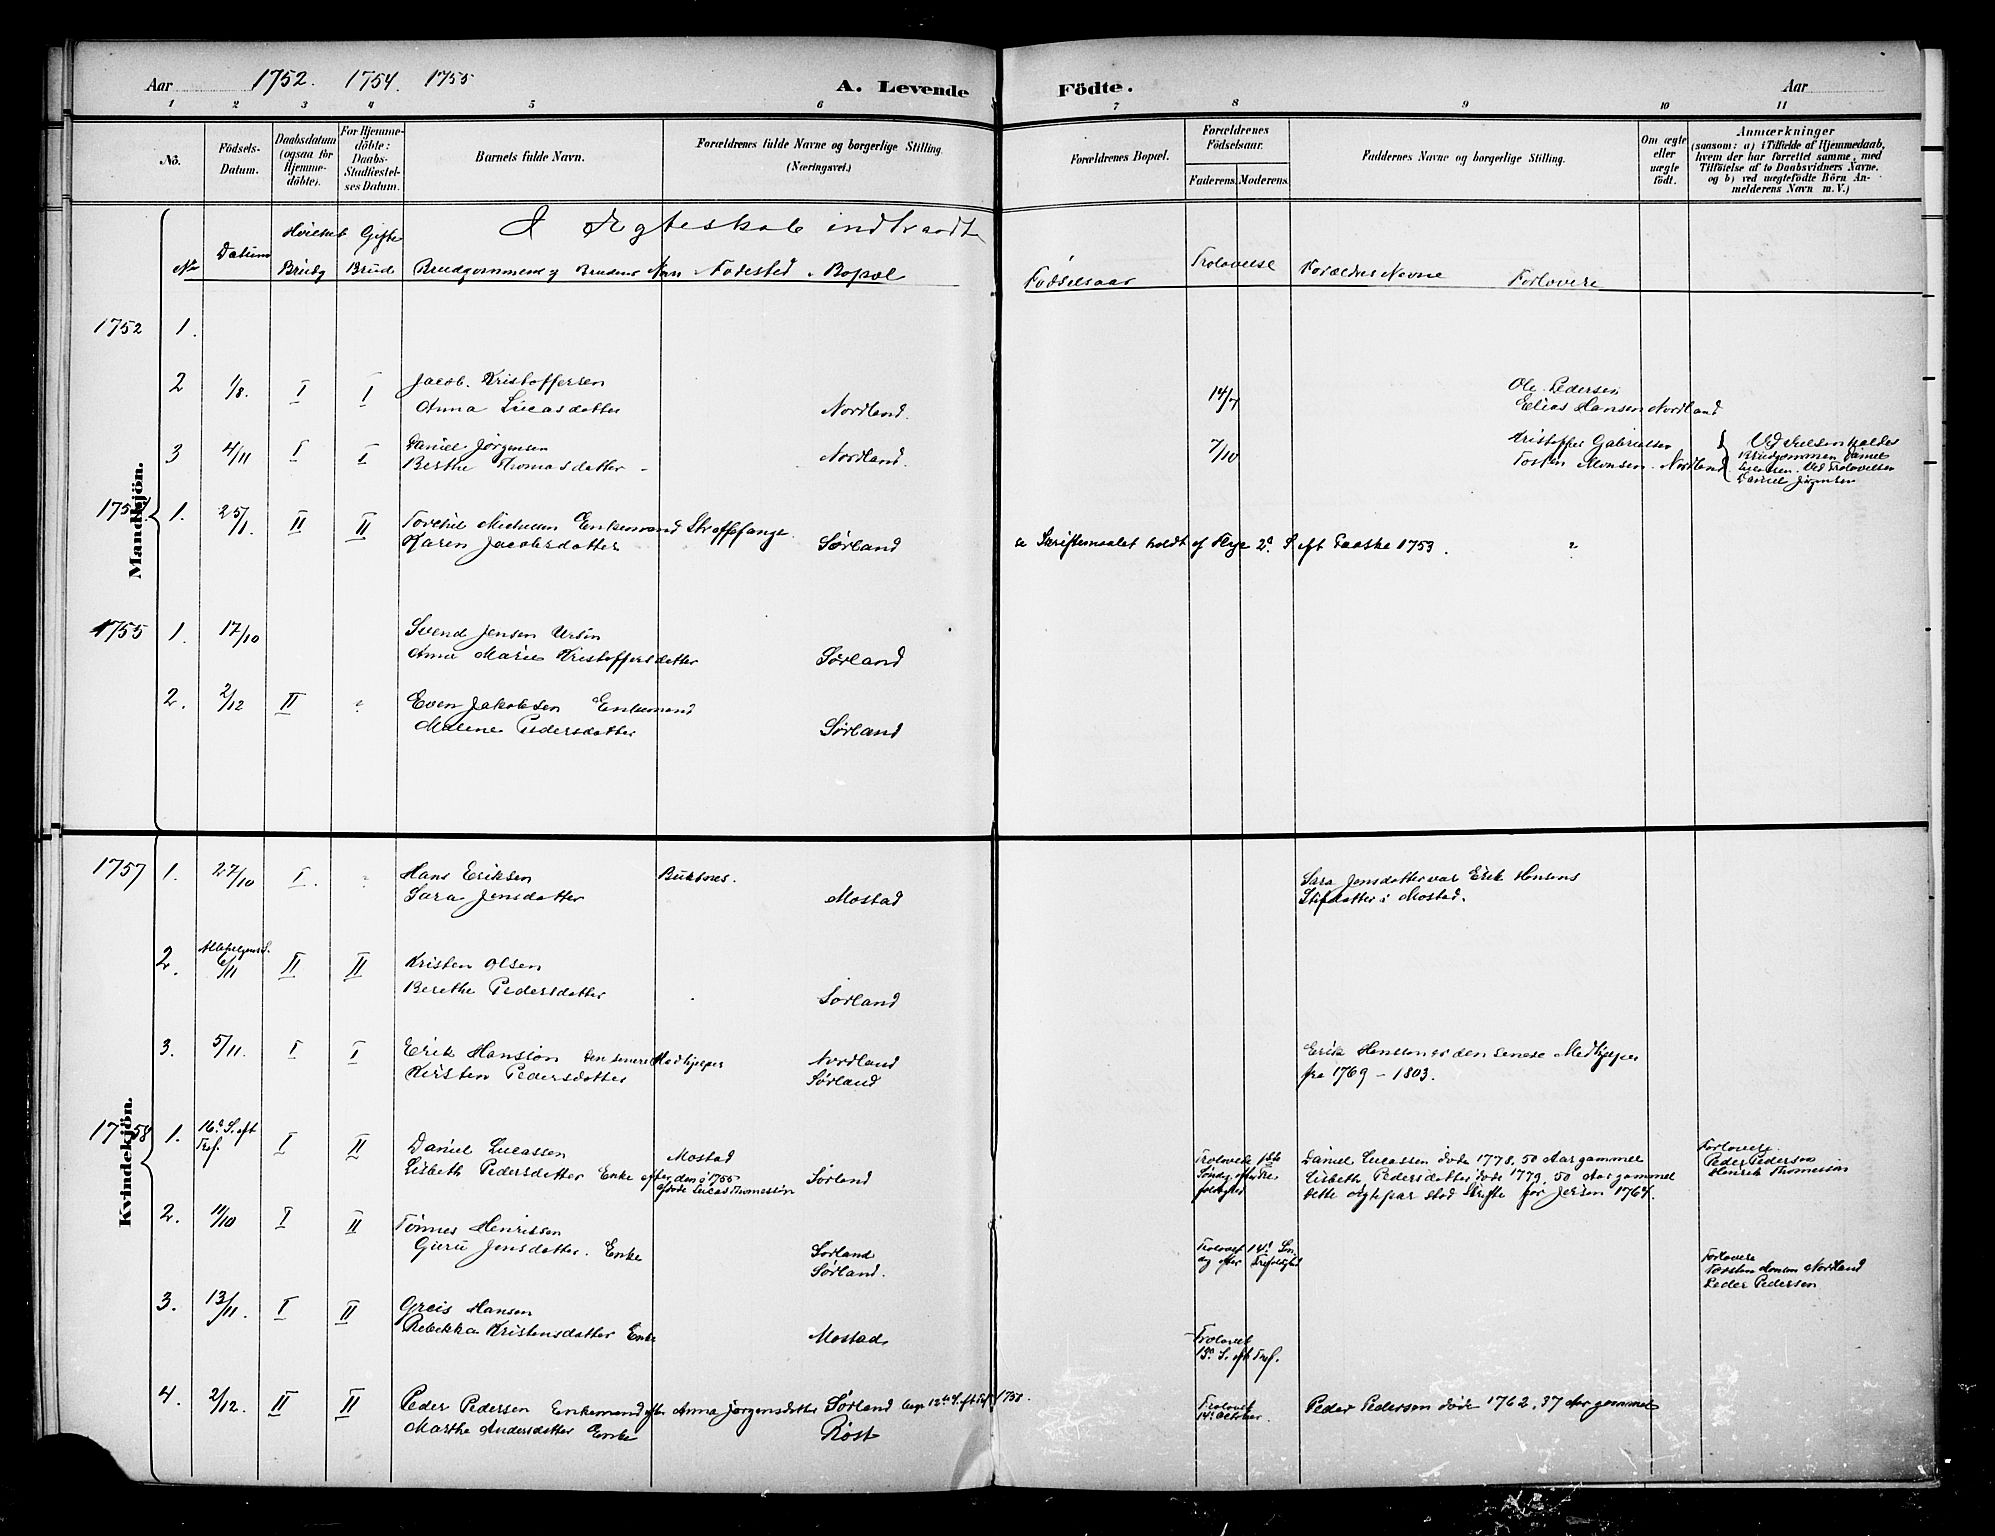 Aar 1752. 1754. 1755 A. Levende Födte. Aar
1 2 3 4 5 6 7 8 9 10 11
Nö. Födsels-Datum. Daabsdatum (ogsaa for Hjemmedöbte). For Hjemmedöbte: Daabs-Stadfæstelses Datum. Barnets fulde Navn. Forældrenes fulde Navne og borgerlige Stilling. (Næringsvei.) Forældrenes Bopæl. Forældrenes Födselsaar. Faderens. Moderens. Faddernes Navne og borgerlige Stilling. Om ægte eller uægte födt. Anmærkninger (saasom: a) i Tilfælde af Hjemmedaab, hvem der har forrettet samme, med Tilföielse af to Daabsvidners Navne, og b) ved uægtefödte Börn Anmelderens Navn m. V.)
Mandkjön.
I Ægteskab indtraadt
No Datum Hvilket Gifte Brudg Brud Brudgommens og Brudens Navn Fødested. Bopæl Fødselsaar Trolovelse Forældres Navne Forlovere
1752 1.
2 1/8. I I Jacob. Kristoffersen 14/7 Ole Pedersen
Anna Lucasdatter Nordland. Elias Hansen Nordland
3 4/11 I I Daniel Jørgensen Nordland. 7/10 Kristoffer Gabrielsen Ved Vielsen kaldes
Berthe Thomasdatter Tosten Monsen. Nordland Brudgommen Daniel
Ved Trolovelsen
Daniel Jørgensen
1754 1. 25/1. II II Michelsen Enkemand Straffefange.
Karen Jacobsdatter Sørland Skriftemaalet holdt af 2d S eft Paaske 1753. "
1755 1. 17/10 Svend Jensen Ursin
Anne Marie Kristoffersdatter Sørland
2. 2/12 II " Even Jakobsen Enkemand
Malene Pedersdatter Sørland
1757 1. 27/10 I. " Hans Eriksen Buksnes. Sara Jensdatter var Erik Hansens
Sara Jensdatter Mostad Stifdatter i Mostad.
2. Allehelgens S. 6/11 II II Kristen Olsen
Berethe Pedersdatter Sørland
3. 5/11. I I Erik Hansson den senere Medhjelper Nordland Erik Hansson er den senere Medhjelper
Kirsten Pedersdatter Sørland fra 1769 – 1803.
Kvindekjön.
1758 1. 16d S. eft Tref. I II Daniel Lucassen Mostad Trolovede 1ste Daniel Lucassen døde 1778, 50 Aar gammel Forlovere
Lisbeth Pedersdatter Enke efter den i 1755 Sørland Søndag efter Tre- Lisbeth Pedersdatter døde 1779, 50 Aar gammel Peder Pedersen
afdøde Lucas Thomessøn foldighed dette ægtepar stod Skrifte for 1764. Henrik Thomessøn
2. 11/10 I II Tønnes Henriksen
Guru Jensdatter. Enke Sørland Trolovet 14d Søn- Forlovere
Sørland. dag efter Trefoldighed Torsten Monsen Nordland
Peder Pedersen
3. 13/11. I II Greis Hansen
Rebekka Kristensdatter Enke Mostad Trolovet
15d S. eft Tref.
4. 2/12. II II Peder Pedersen Enkemand efter Anna Jørgensdatter Sørland 12te S. eft Tref 1758. Trolovet Peder Pedersen døde 1762, 37 Aar gammel
Marthe Andersdatter Enke Røst 14d October.